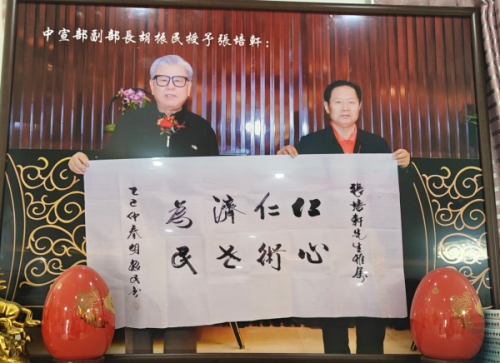 中宣部副部長胡振民授予張培軒：
張培軒先生雅屬
仁心
仁術
濟世
為民
乙巳仲春胡振民书